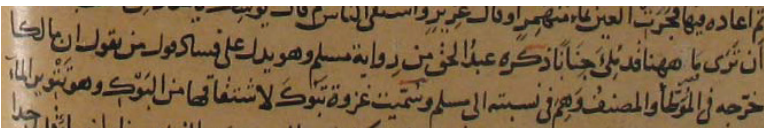 ثم اعاده فيها فجرت العين بماء منهمر او قال غزير واستقى الناس ثم قال يوشك
ان ترى ما ههنا قد ملئ جنانا ذكره عبد الحق من رواية مسلم وهو يدل على فساد قول من يقول ان مالكا
خرجه في الموطأ والمصنف وهم في نسبته الى مسلم وسميت غزوة تبوك لاشتقاقها من البوك وهو تثوير الماء
جدا